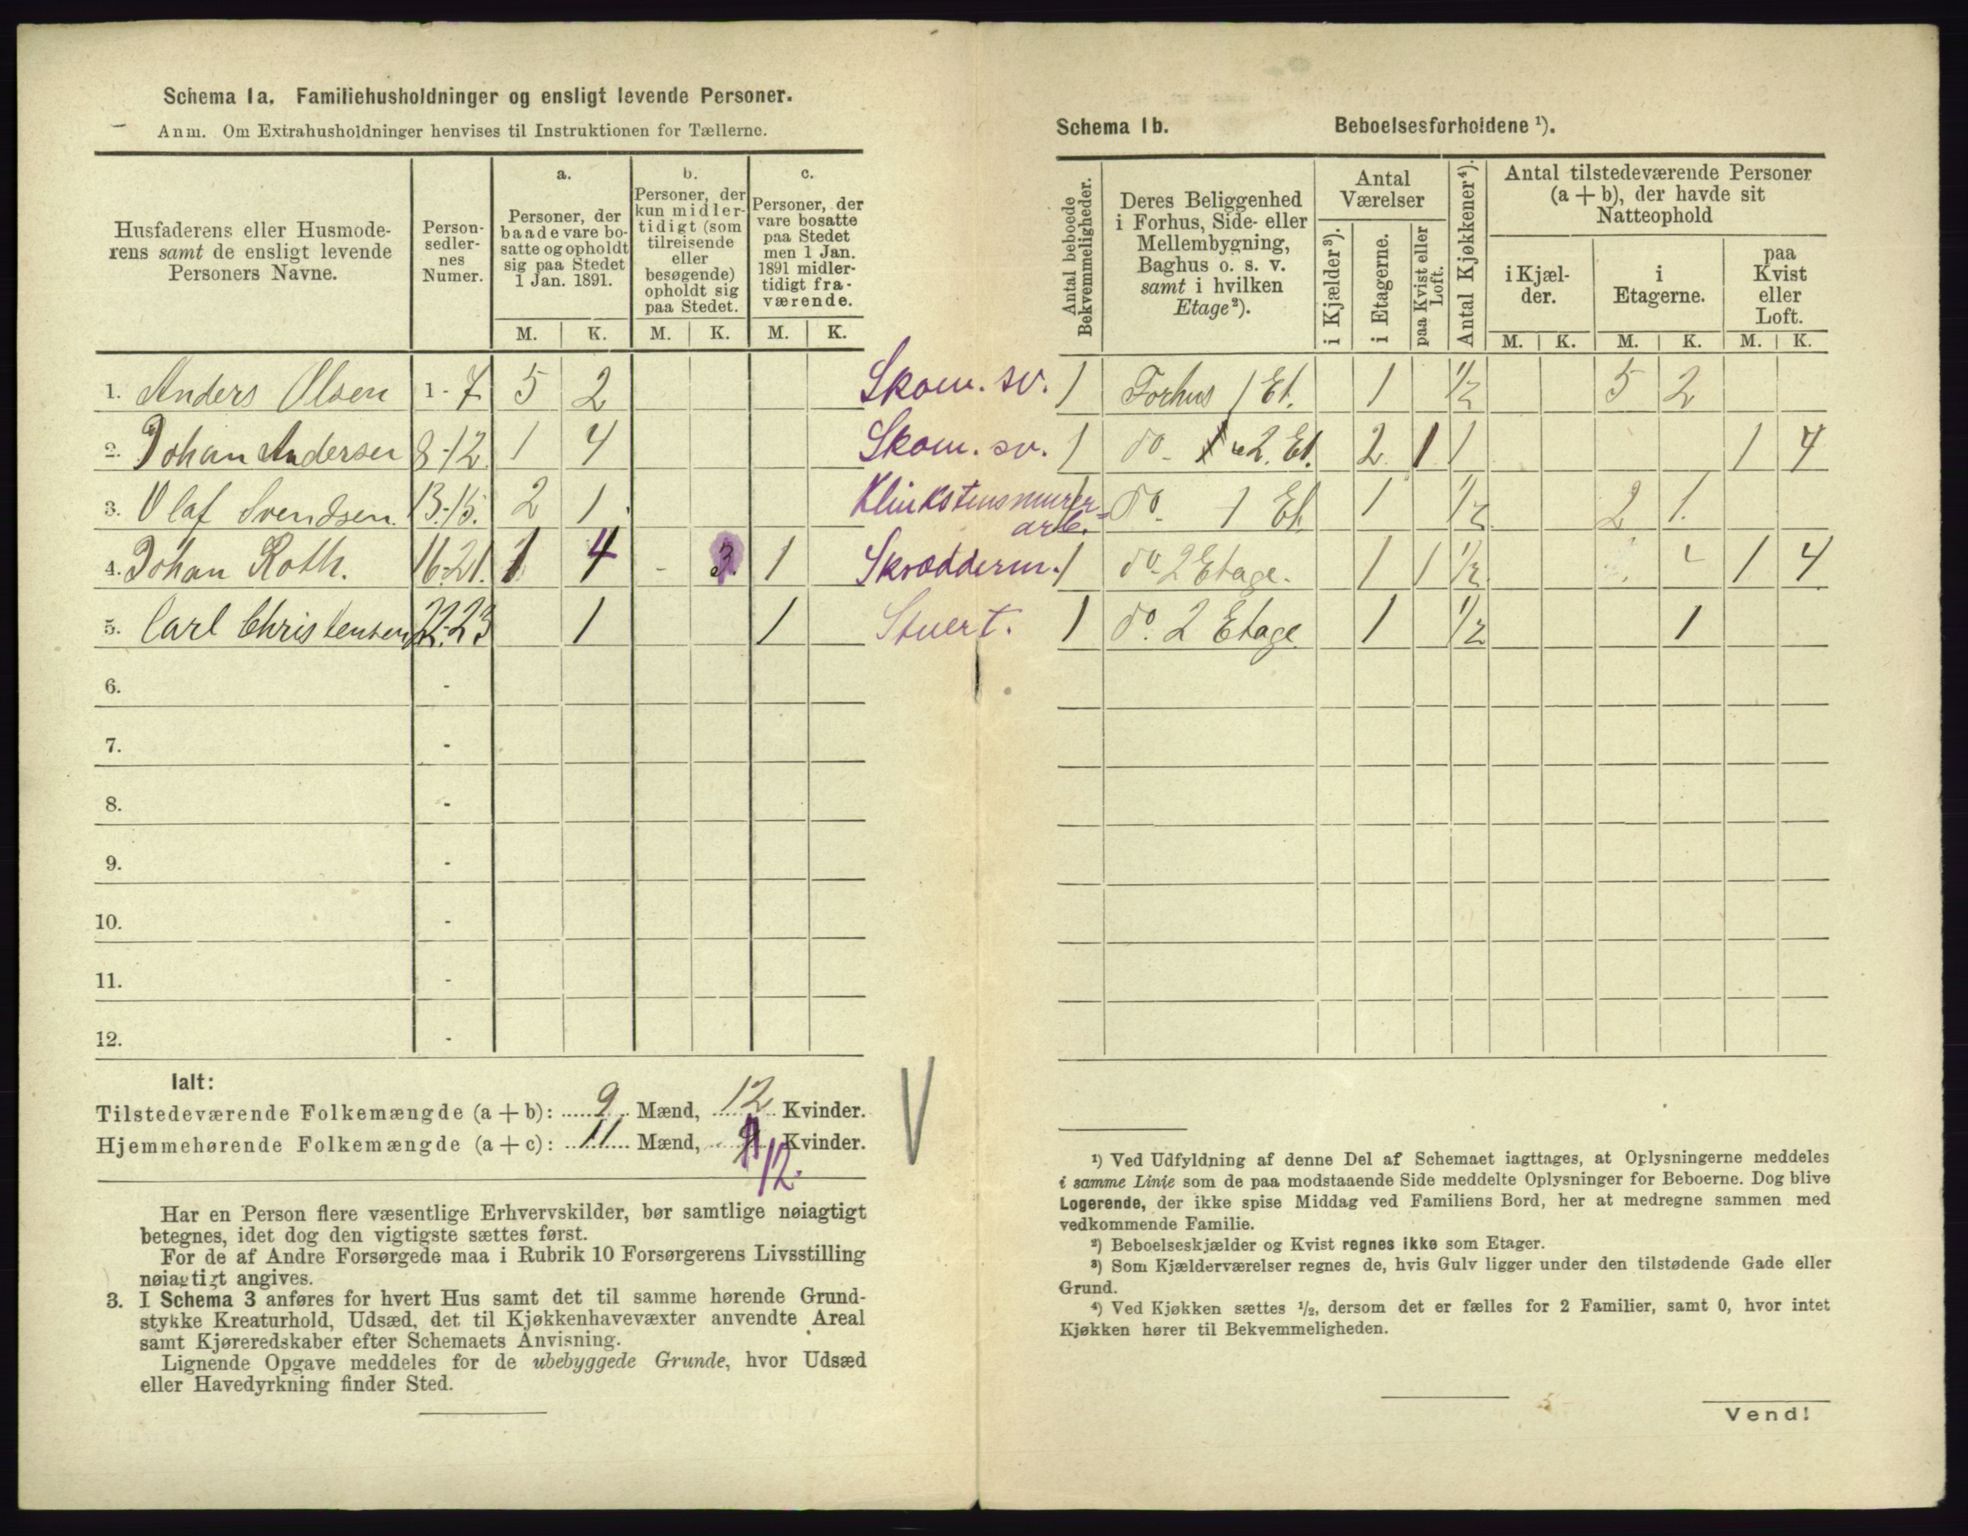 Schema 1a. Familiehusholdninger og ensligt levende Personer.
Anm. Om Extrahusholdninger henvises til Instruktionen for Tællerne.
Husfaderens eller Husmoderens samt de ensligt levende Personers Navne.
Personsedlernes Numer.
a. Personer, der baade vare bosatte og opholdt sig paa Stedet 1 Jan. 1891.
b. Personer, der kun midlertidigt (som tilreisende eller besøgende) opholdt sig paa Stedet.
c. Personer, der vare bosatte paa Stedet men 1 Jan. 1891 midlertidigt fraværende.
M. K. M. K. M. K.
1. Anders Olsen 1-7 5 2 Skom. sv.
2. Johan Andersen 8-12 1 4 Skom. sv.
3. Olaf Svendsen 13-15. 2 1 Klinkstensmurerarb.
4. Johan Roth. 16-21. 1 4 - 3. 1 Skrædderm.
5. Carl Christensen 22-23 1 1 Stuert.
6. -
7. -
8. -
9. -
10. -
11. -
12. -
Ialt:
Tilstedeværende Folkemængde (a + b): 9 Mænd, 12 Kvinder.
Hjemmehørende Folkemængde (a + c): 11 Mænd, Kvinder.
12.
Har en Person flere væsentlige Erhvervskilder, bør samtlige nøiagtigt
betegnes, idet dog den vigtigste sættes først.
For de af Andre Forsørgede maa i Rubrik 10 Forsørgerens Livsstilling
nøiagtigt angives.
3. I Schema 3 anføres for hvert Hus samt det til samme hørende Grund-
stykke Kreaturhold, Udsæd, det til Kjøkkenhavevæxter anvendte Areal
samt Kjøreredskaber efter Schemaets Anvisning.
Lignende Opgave meddeles for de ubebyggede Grunde, hvor Udsæd
eller Havedyrkning finder Sted.
Schema 1b. Beboelsesforholdene ¹).
Antal beboede Bekvemmeligheder.
Deres Beliggenhed i Forhus, Side- eller Mellembygning, Baghus o. s. v. samt i hvilken Etage²).
Antal Værelser
i Kjælder³).
i Etagerne.
paa Kvist eller Loft.
Antal Kjøkkener⁴).
Antal tilstedeværende Personer (a + b), der havde sit Natteophold
i Kjælder.
i Etagerne.
paa Kvist eller Loft.
M. K. M. K. M. K.
1 Forhus 1 Et. 1 1/2 5 2
1 do - 2. Et. 2 1 1 1 4
1 do. 1 Et 1 1/2 2 1.
1 do. 2 Etage. 1 1 1/2 1 4
1 do. 2 Etage 1 1/2 1
¹) Ved Udfyldning af denne Del af Schemaet iagttages, at Oplysningerne meddeles
i samme Linie som de paa modstaaende Side meddelte Oplysninger for Beboerne. Dog blive
Logerende, der ikke spise Middag ved Familiens Bord, her at medregne sammen med
vedkommende Familie.
²) Beboelseskjælder og Kvist regnes ikke som Etager.
³) Som Kjælderværelser regnes de, hvis Gulv ligger under den tilstødende Gade eller
Grund.
⁴) Ved Kjøkken sættes ¹/₂, dersom det er fælles for 2 Familier, samt 0, hvor intet
Kjøkken hører til Bekvemmeligheden.
Vend!